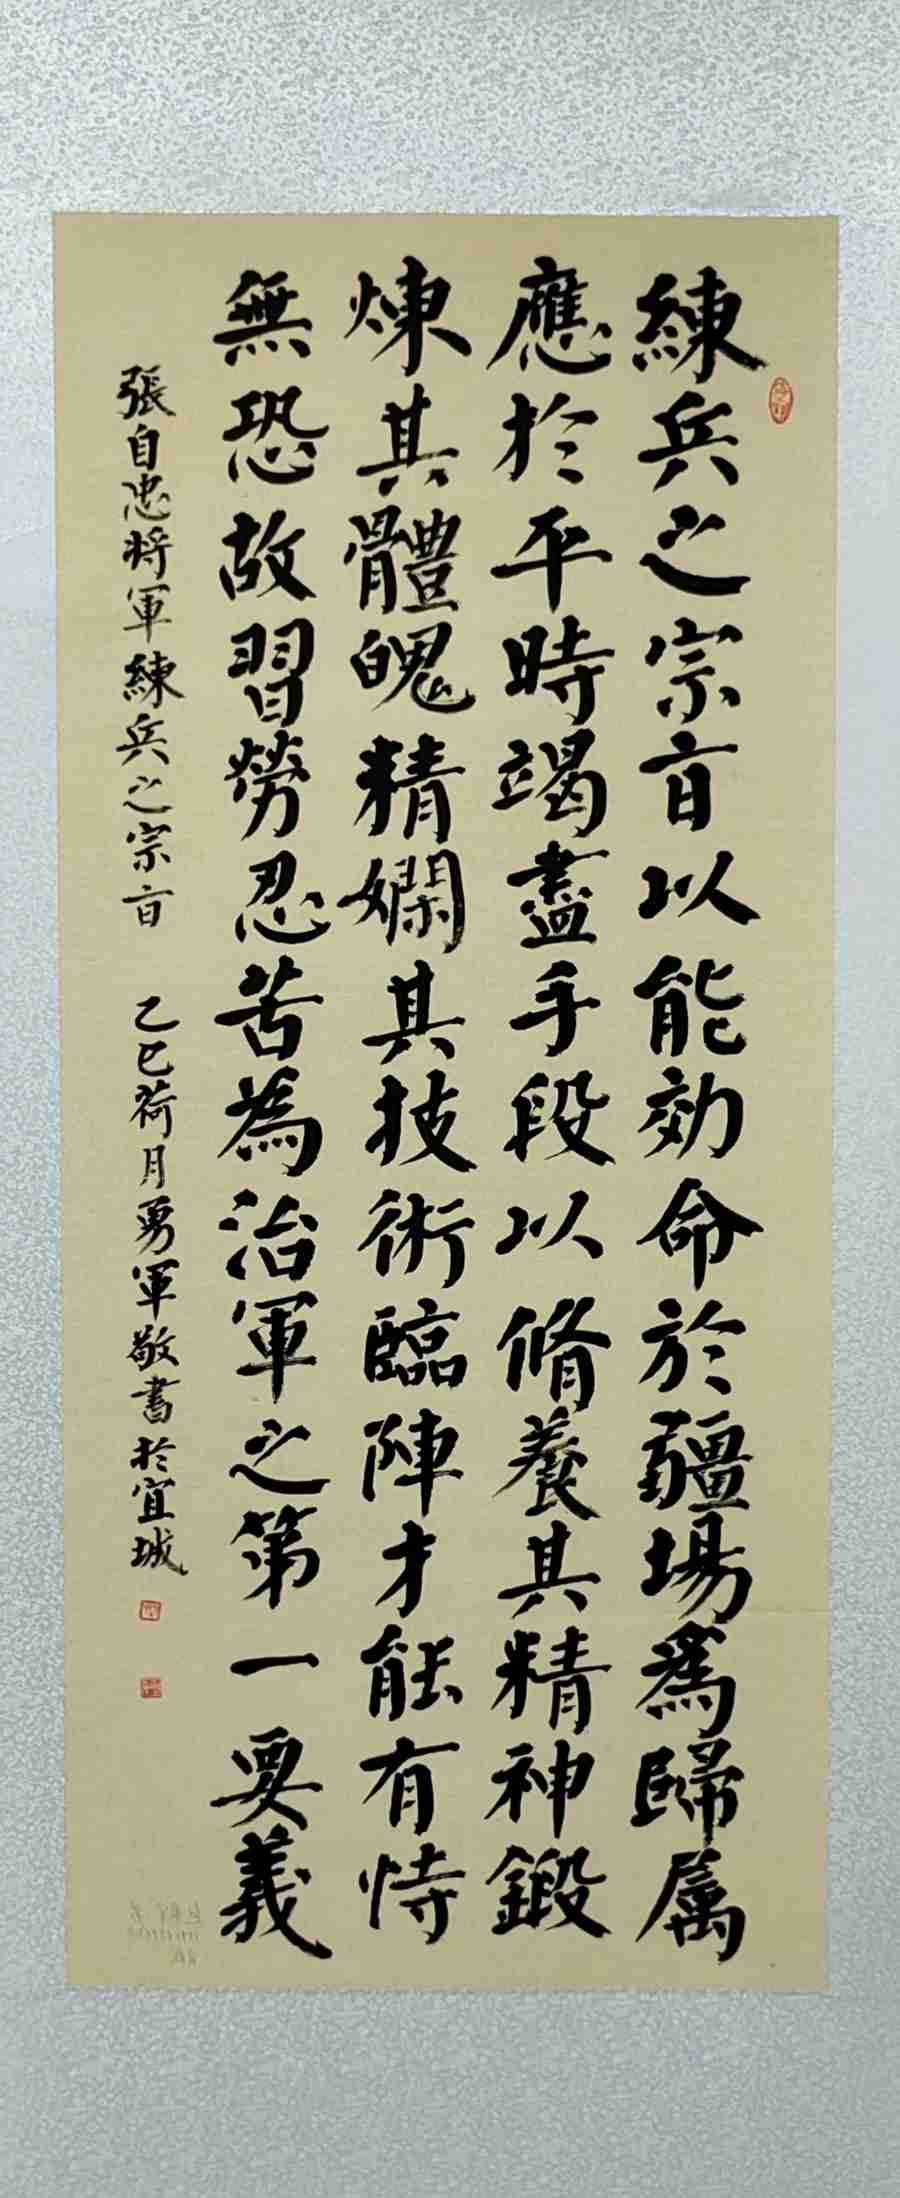 練兵之宗旨以能効命於疆場為歸属
應於平時竭盡手段以脩養其精神鍛
煉其體魄精嫻其技術臨陣才能有恃
無恐故習勞忍苦為治軍之第一要義
張自忠将軍練兵之宗旨 乙巳荷月勇軍敬書於宜城